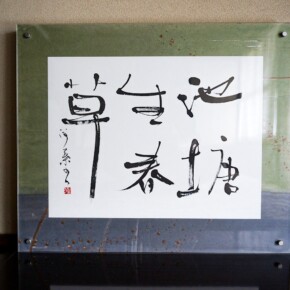 池塘
生春
草